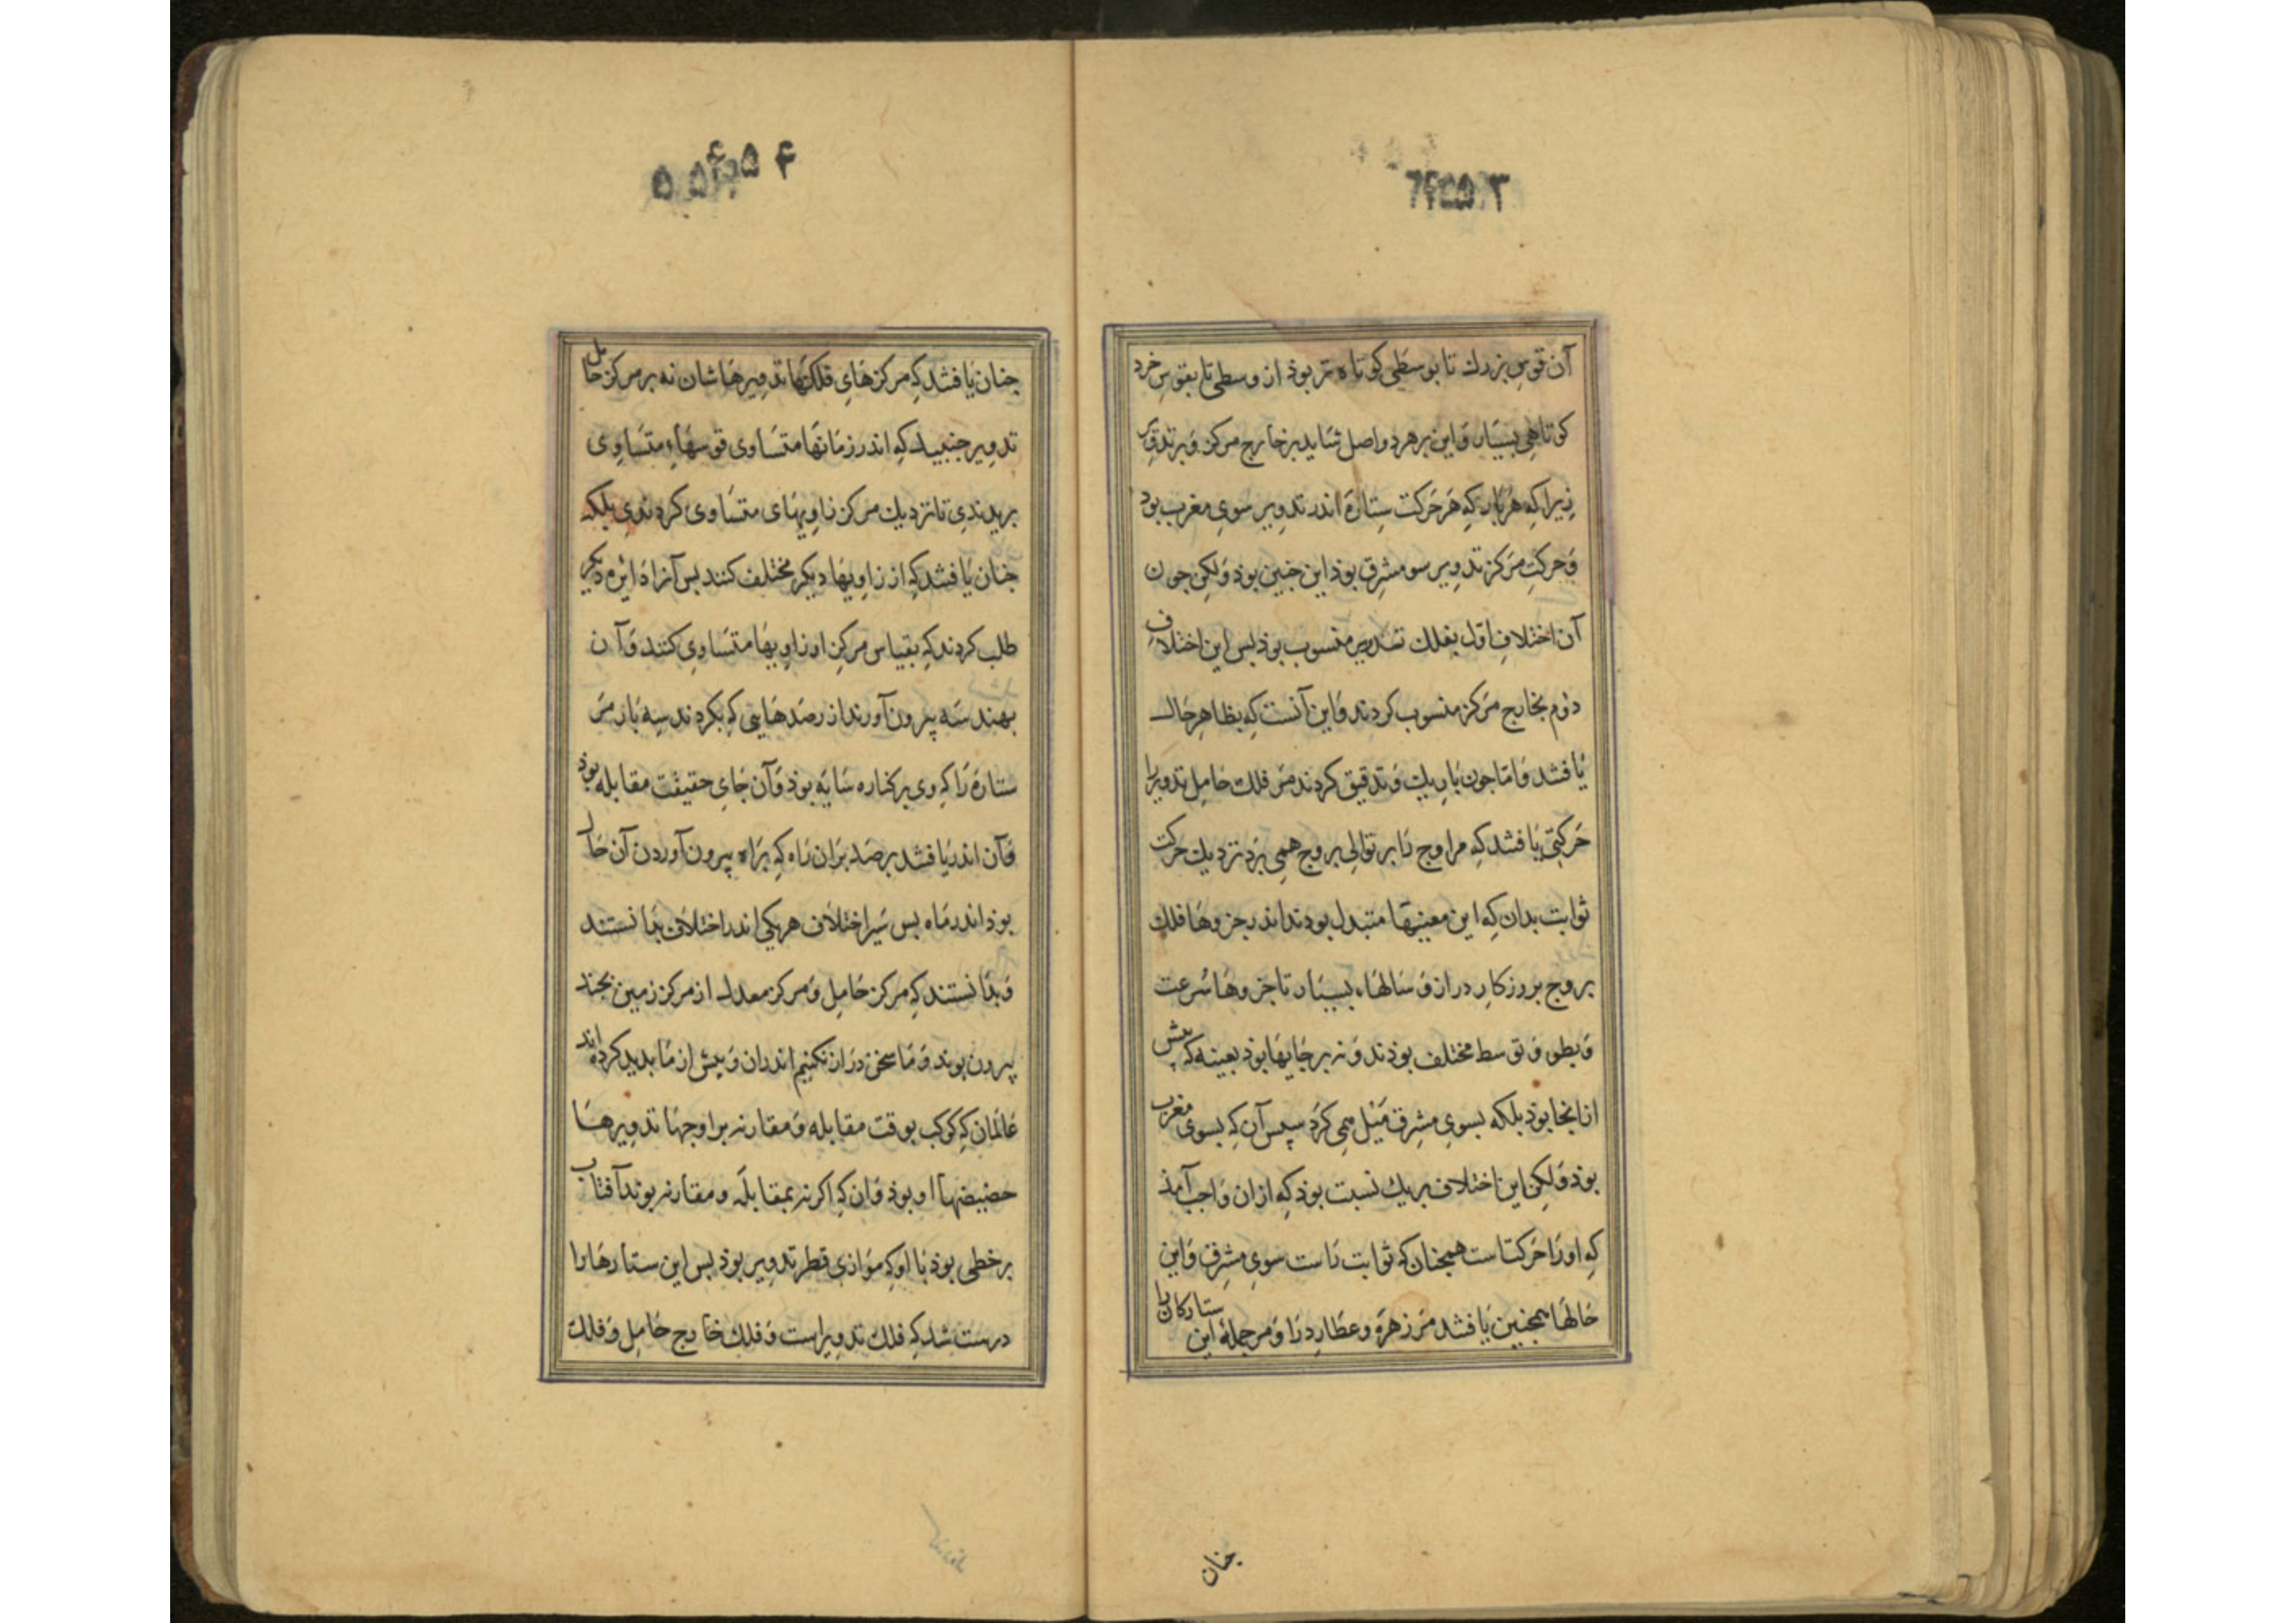 آن قوس بزرك تا بوسطی كوتاه تر بوذ از وسطی تا بقوس خرد
كوتاهی بسیار و این بر هر دو اصل شاید بر خارج مركز و بر تدویر
زیرا كه هربار كه هر حركت ستاره اندر تدویر سوی مغرب بود
و حركت مركز تدویر سو مشرق بوذ این جنین بوذ ولكن جون
آن اختلاف اول بفلك تدویر منسوب بوذ بس این اختلاف
دوم بخارج مركز منسوب كردند و این آنست كه بظاهر حال
یافتند و اما جون باریك و تدقیق كردند مر فلك حامل تدویرا
حركتی یافتند كه مر اوج را بر توالی بروج همی برد نزدیك حركت
ثوابت بدان كه این معینها متبدل بودند اندر جزوها فلك
بروج بروزكار دراز و سالهاء بسیار تا جزوها سرعت
و بطو و توسط مختلف بوذند و نه بر جایها بوذ بعینه كه بیش
از انجا بوذ بلكه بسوی مشرق میل همی كرد سپس آن كه بسوی مغرب
بوذ ولكن این اختلاف بر یك نسبت بوذ كه ازان واجب آمذ
كه اورا حركتاست همجنان كه ثوابت راست سوی مشرق و این
حالها همجنین یافتند مر زهره و عطارد را و مر جمله این ستاركان را
جنان
جنان یافتند كه مركزهای فلكها تدویرهاشان نه بر مركز حامل
تدویر جنبید كه اندر زمانها متساوی قوسهاء متساوی
بریدندی تا نزدیك مركز زاویهای متساوی كردندی بلكه
جنان یافتند كه از زاویها دیكر مختلف كنند بس آنرا دائره دیكر
طلب كردند كه بقیاس مركز او زاویها متساوی كنند و آن
بهندسه بیرون آورند از رصدهایی كه بكردند سه بار مر
ستاره را كه وی بر كناره سایه بوذ و آن جای حقیقت مقابله بوذ
و آن اندر یافتند برصد بران راه كه براه بیرون آوردن آن حال
بوذ اندر ماه بس سیر اختلاف هر یكی اندر اختلاف بدانستند
و بدانستند كه مركز حامل و مركز معدل از مركز زمین بجند
بیرون بوند و ما سخن دراز نكنیم اندران و بیش از ما بدید كرده اند
عالمان كه كوكب بوقت مقابله و مقارنه بر اوجها تدویرها
حضیضها او بوذ و ان كه اكر نه بمقابله و مقارنه بوند آفتاب
بر خطی بوذ با او كه موازی قطر تدویر بوذ بس این ستارها را
درست شد كه فلك تدویر است و فلك خارج حامل و فلك